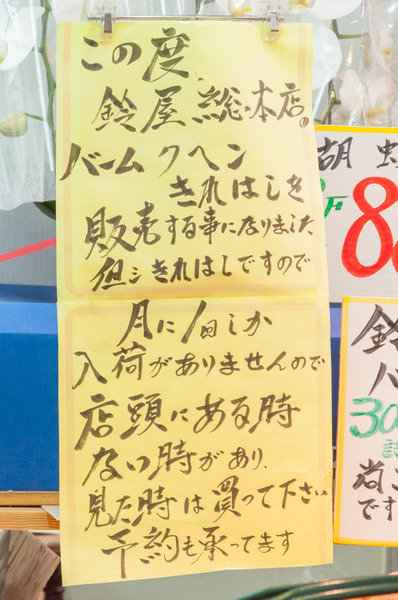 この度、
鈴屋総本店の
バームクヘン
きれはしを
販売する事になりました
但シきれはしですので
月に1回しか
入荷がありませんので
店頭にある時
ない時があり、
見た時は買って下さい
予約も承ってます
胡蝶
8
鈴
バ
300
です